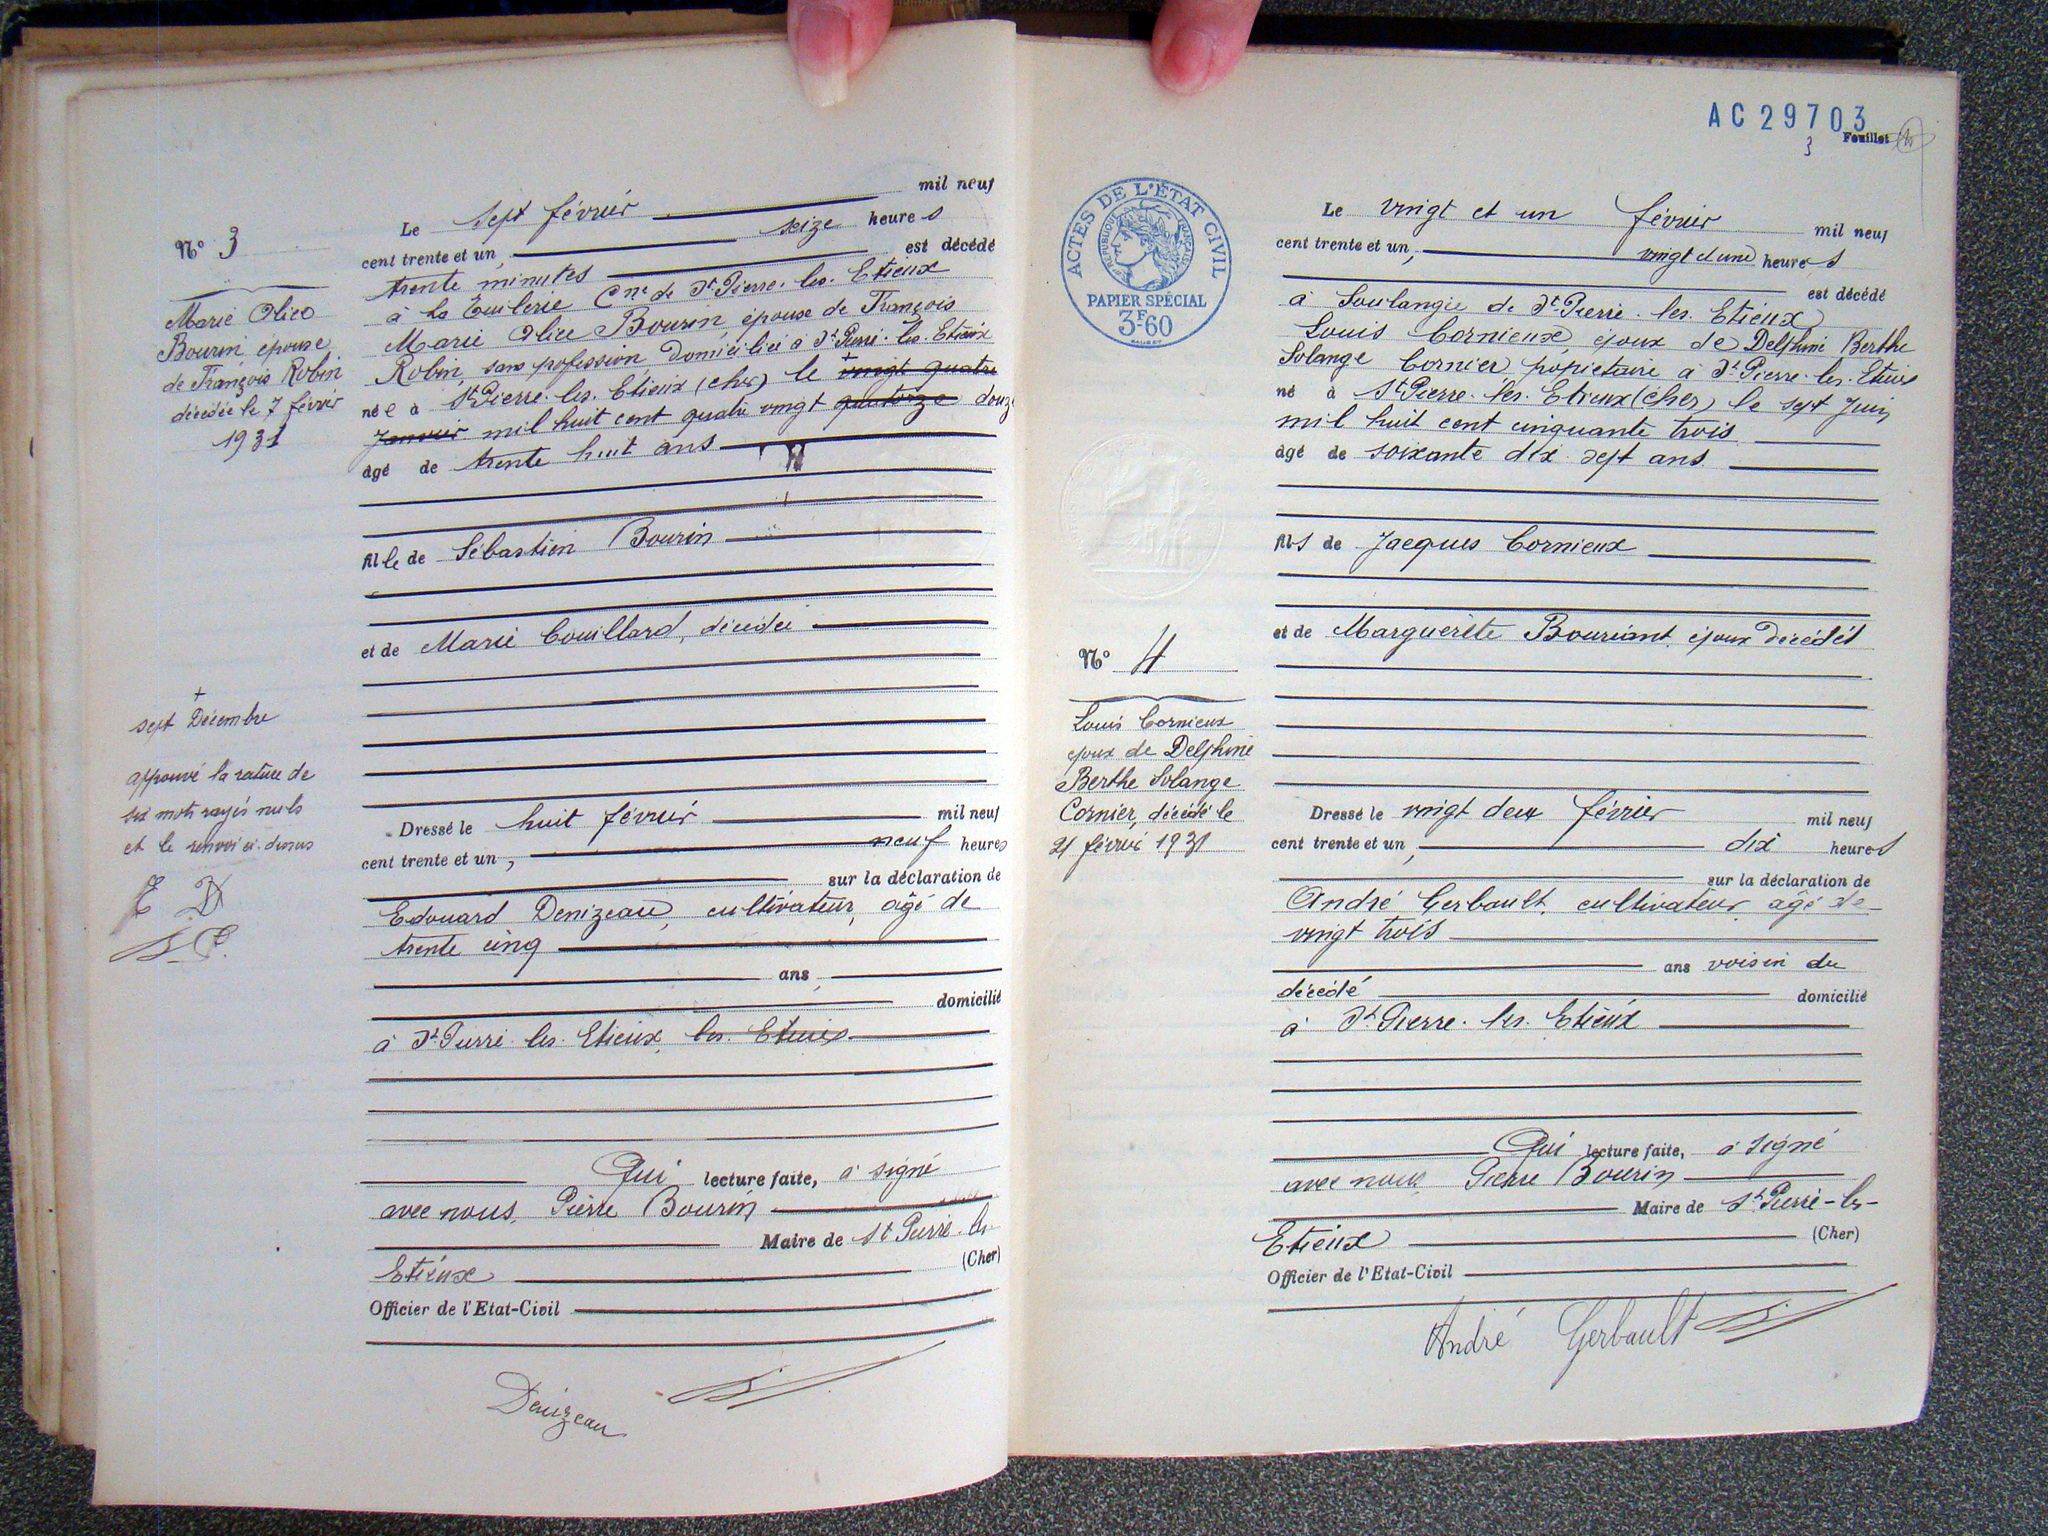 N° 3
Marie Alice
Bourin épouse
de François Robin
décédée le 7 février
1931
Le sept février mil neuf
cent trente et un, seize heures
trente minutes est décédé
à La Tuilerie Cne de St Pierre. les. Etieux
Marie Alice Bourin, épouse de François
Robin, sans profession, domiciliée à St Pierre. les. Etieux
née à St Pierre. les. Etieux (cher) le + vingt quatre
Janvier mil huit cent quatre vingt quatorze douze
âgé de trente huit ans
fille de Sébastien Bourin
et de Marie Couillard, décédée
+
sept Décembre
approuvé la rature de
six mots rayés nuls
et le renvoi ci-dessus
E D
Dressé le huit février mil neuf
cent trente et un, neuf heures
sur la déclaration de
Edouard Denizeau, cultivateur, âgé de
trente cinq
ans,
domicilié
à St Pierre. les. Etieux, les. Etieux
Qui lecture faite, a signé
avec nous, Pierre Bourin
Maire de St Pierre-les-
Etieux (Cher)
Officier de l'Etat-Civil
Denizeau
AC 29703
Feuillet
3
ACTES DE L'ÉTAT CIVIL
RÉPUBLIQUE FRANÇAISE
PAPIER SPÉCIAL
3F60
Le vingt et un février mil neuf
cent trente et un, vingt et une heures
est décédé
à Soulangie de St Pierre. les. Etieux
Louis Cornieux époux de Delphine Berthe
Solange Cornier, propietaire à St Pierre. les. Etieux
né à St Pierre. les. Etieux (cher) le sept Juin
mil huit cent cinquante trois
âgé de soixante dix sept ans
fils de Jacques Cornieux
et de Marguerite Bouriant, époux décédés
N° 4
Louis Cornieux
époux de Delphine
Berthe Solange
Cornier, décédé le
21 février 1931
Dressé le vingt deux février mil neuf
cent trente et un, dix heures
sur la déclaration de
André Gerbault, cultivateur, âgé de
vingt trois
ans voisin du
décédé domicilié
à St Pierre. les. Etieux
Qui lecture faite, a signé
avec nous, Pierre Bourin
Maire de St Pierre-les-
Etieux (Cher)
Officier de l'Etat-Civil
André Gerbault